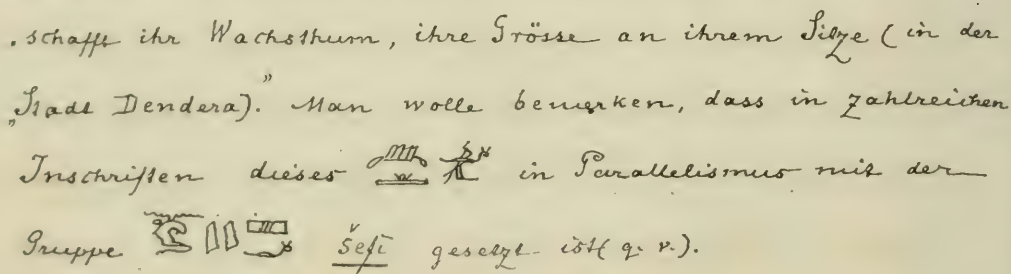 schafft ihr Wachsthum, ihre Grösse an ihrem Sitze (in der
„Stadt Dendera)." Man wolle bemerken, dass in zahlreichen
Inschriften dieses in Parallelismus mit der
Gruppe šefi gesetzt ist (q. v.).